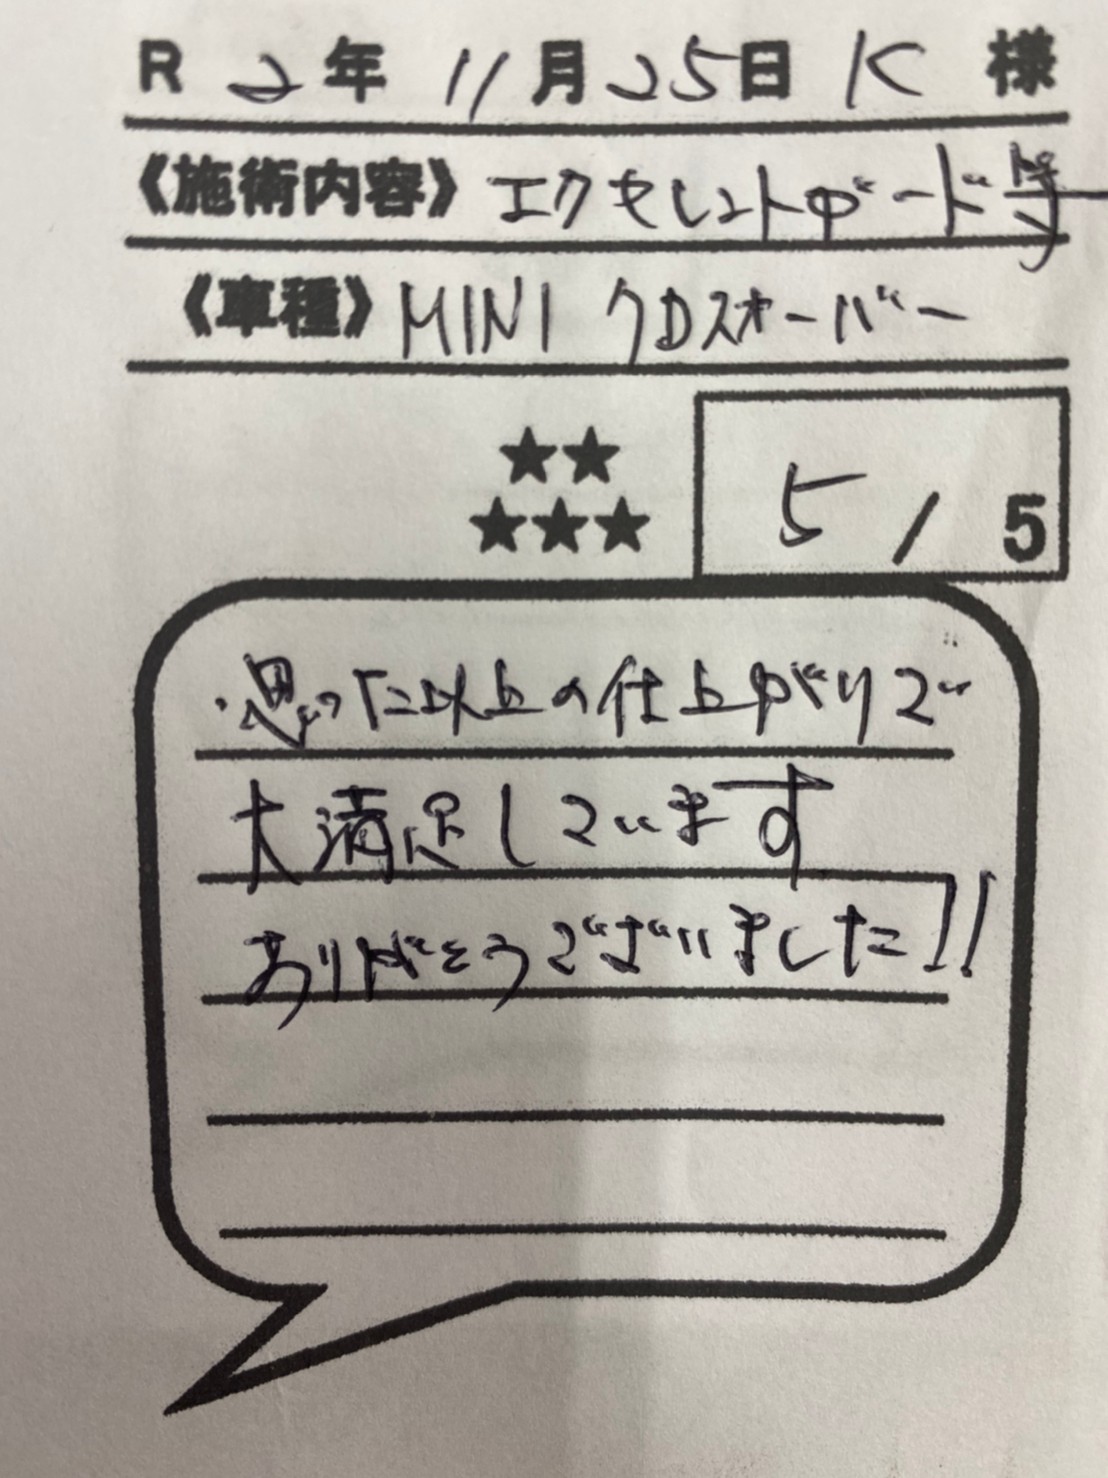 R 2年 11月25日 K 様
《施術内容》エクセレントガード等
《車種》MINI クロスオーバー
★★
★★★
5 / 5
・思った以上の仕上がりで
大満足しています
ありがとうございました!!